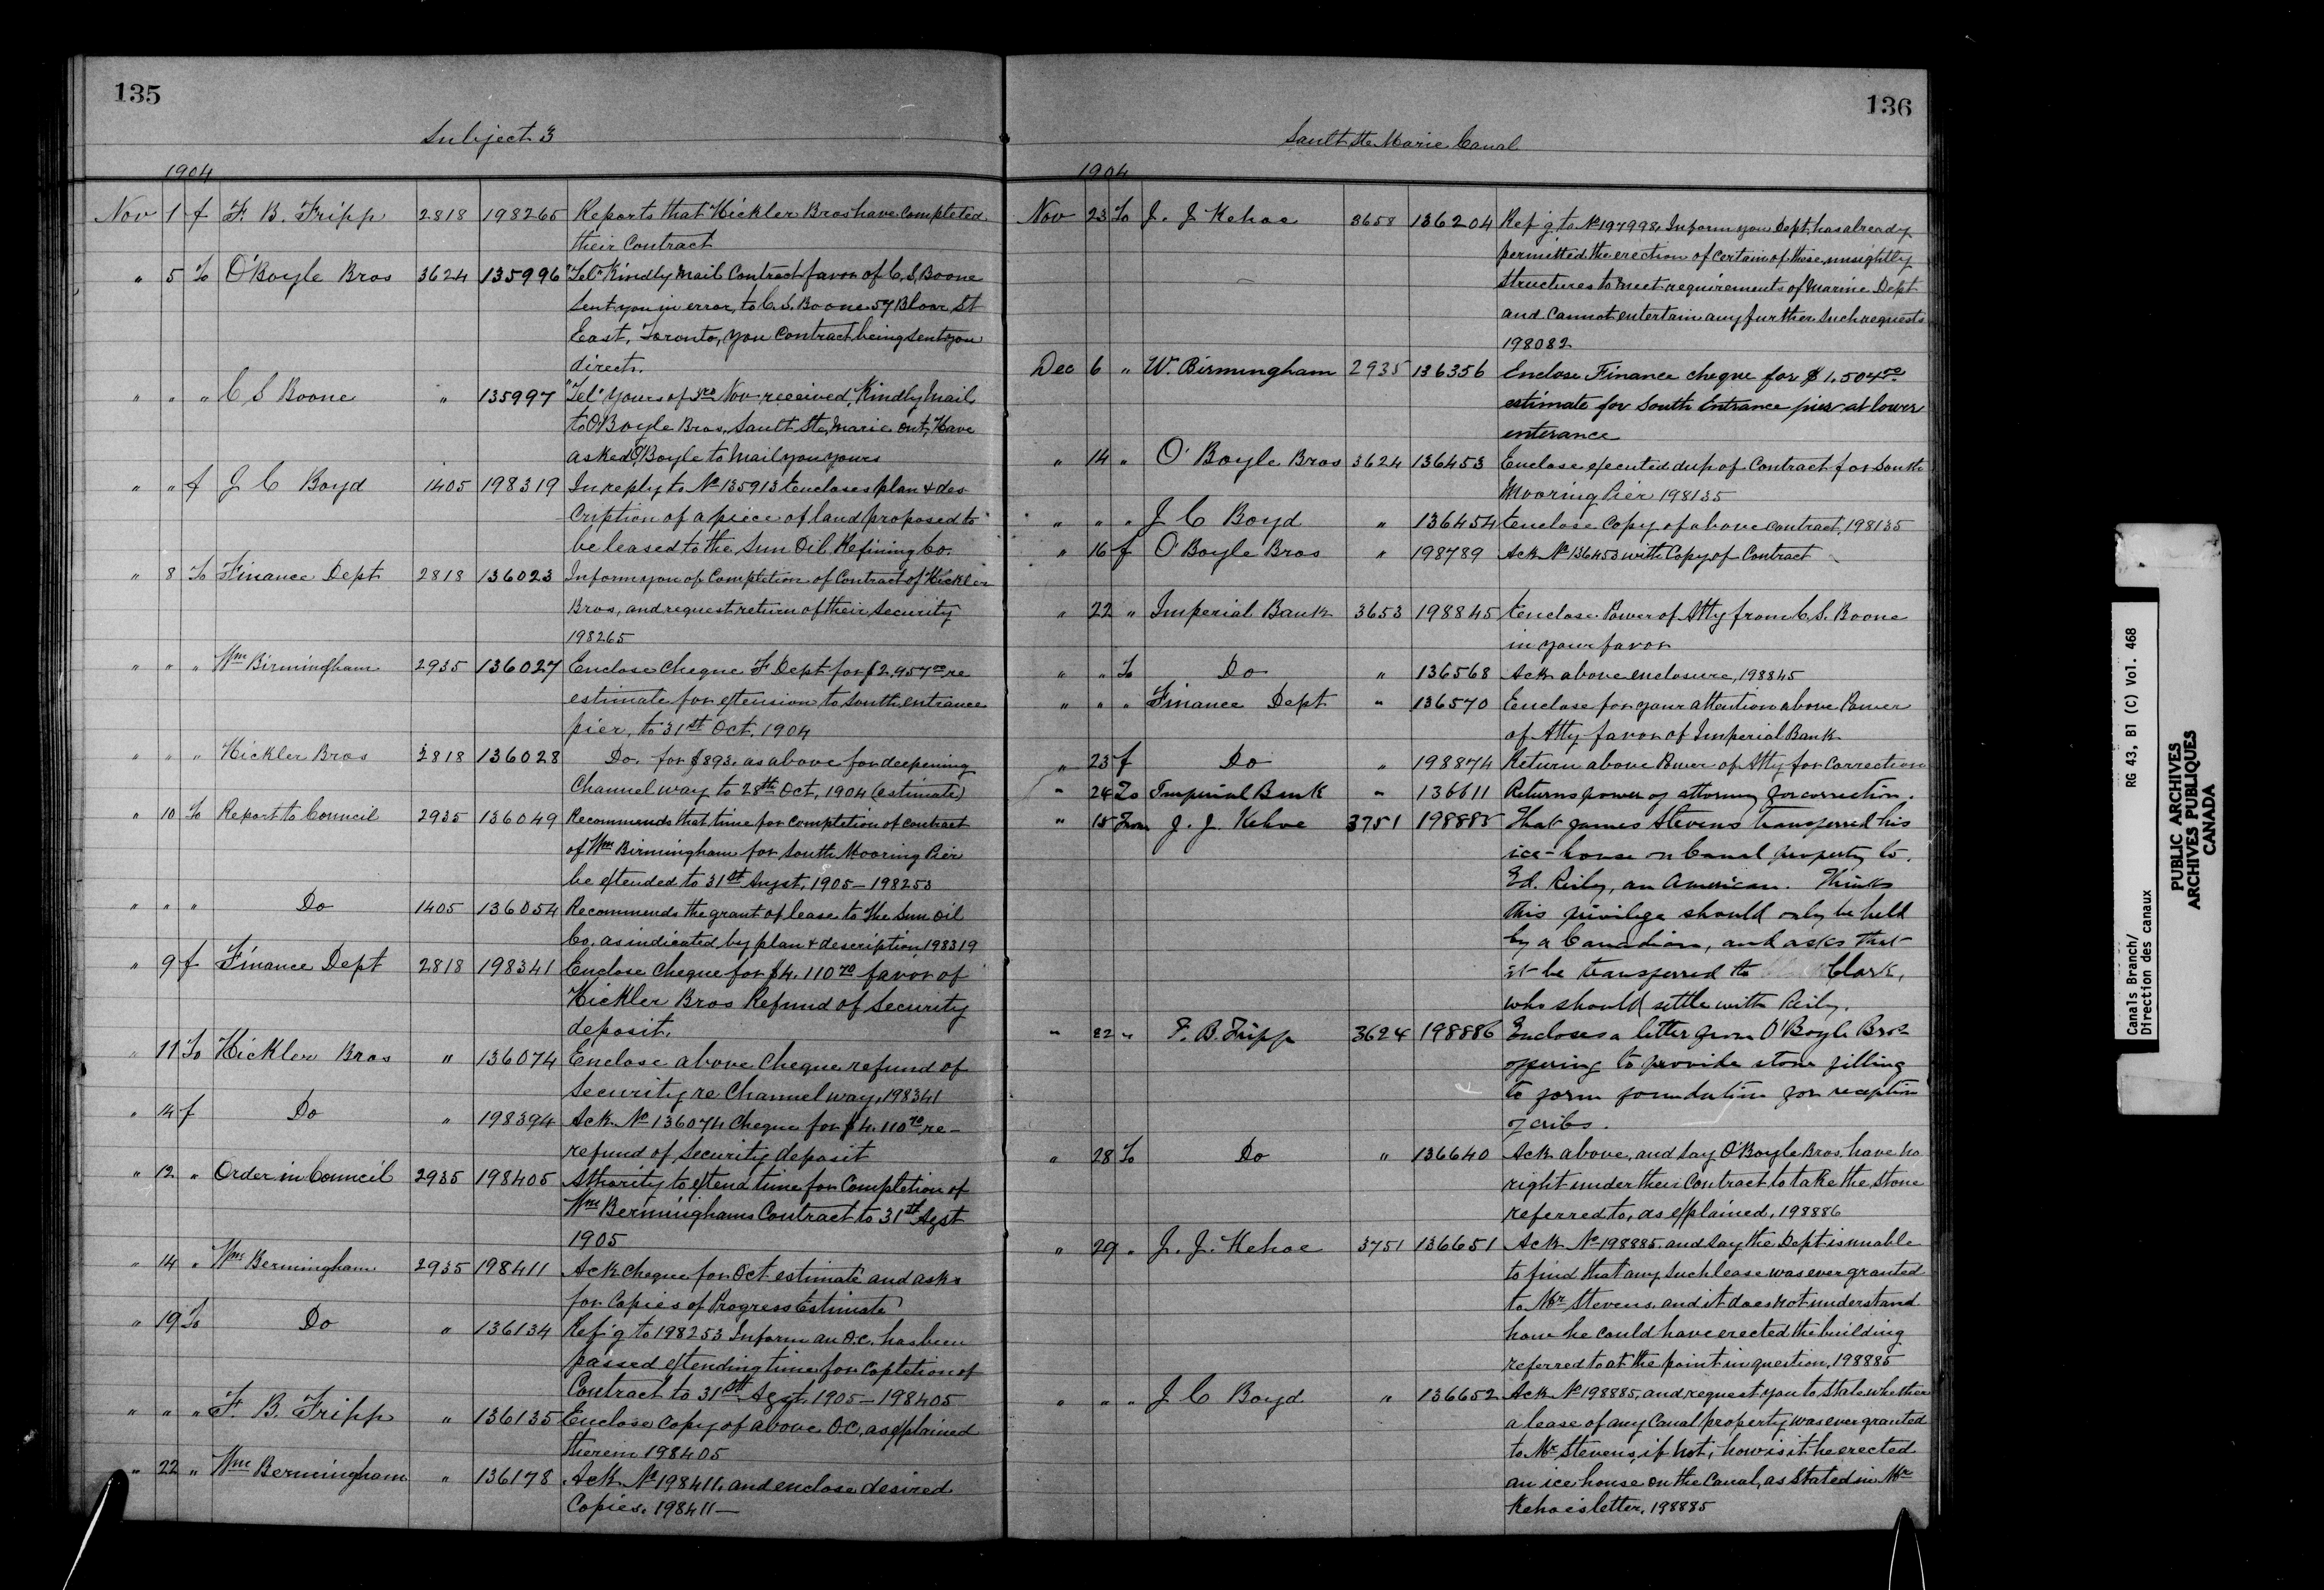 135
Subject 3
1904
Nov 1 f F. B. Fripp 2818 198265 Reports that Hickler Bros have completed
their Contract
" 5 To O'Boyle Bros 3624 135996 "Tel" Kindly Mail Contract favor of C. S. Boone
Sent you in error, to C. S. Boone 57 Bloor St
East, Toronto, you Contract being sent you
direct.
" " " C S Boone " 135997 "Tel" Yours of 3rd Nov received, Kindly Mail
to O'Boyle Bros, Sault Ste, Marie Ont, Have
asked O'Boyle to Mail you yours
" " f J C Boyd 1405 198319 In reply to No 135913 Encloses plan & des-
cription of a piece of land proposed to
be leased to the Sun Oil Refining Co.
" 8 To Finance Dept 2818 136023 Inform you of Completion of Contract of Hickler
Bros, and request return of their Security
198265
" " " Wm Birmingham 2935 136027 Enclose Cheque F Dept for $2,957.00 re
estimate for extension to South entrance
pier, to 31st Oct. 1904
" " " Hickler Bros 2818 136028 Do. for $893. as above for deepening
Channel way to 28th Oct, 1904 (estimate)
" 10 To Report to Council 2935 136049 Recommends that time for completion of contract
of Wm Birmingham for South Mooring Pier
be extended to 31st Augst. 1905 - 198253
" " " Do 1405 136054 Recommends the grant of lease to the Sun Oil
Co. as indicated by plan & description 198319
" 9 f Finance Dept 2818 198341 Enclose Cheque for $4.110 70 favor of
Hickler Bros Refund of Security
deposit.
" 11 To Hickler Bros " 136074 Enclose above Cheque refund of
Security re Channel way, 198341
" 14 f Do " 198394 Ack No 136074 Cheque for $4.110 70 re-
refund of Security deposit
" 12 " Order in Council 2935 198405 Athority to extend time for Completion of
Wm Berminghams Contract to 31st Agst
1905
" 14 " Wm Bermingham 2935 198411 Ack cheque for Oct estimate and asks
for Copies of Progress Estimate
" 19 To Do " 136134 Ref'g to 198253 Inform an O.C. has been
passed extending time for Copletion of
Contract to 31st Agst. 1905 - 198405
" " " F. B. Fripp " 136135 Enclose Copy of above O.C. as explained
therein 198405
" 22 " Wm Bermingham " 136178 Ack No 198411. and enclose desired
Copies. 198411 -
136
Sault Ste Marie Canal
1904
Nov 23 To J. J Kehoe 3658 136204 Ref'g to No 197998, Inform you Dept, has already
permitted the erection of certain of these unsightly
structures to meet requirements of Marine Dept
and Cannot entertain any further such requests
198082
Dec 6 " W. Birmingham 2935 136356 Enclose Finance cheque for $1,504 50
estimate for South Entrance pier at lower
enterance
" 14 " O'Boyle Bros 3624 136453 Enclose executed dup of Contract for South
Mooring Pier 198135
" " " J C Boyd " 136454 Enclose Copy of above contract, 198135
" 16 f O'Boyle Bros " 198789 Ack No 136453 with Copy of Contract
" 22 " Imperial Bank 3653 198845 Enclose Power of Atty from C. S. Boone
in your favor
" " To Do " 136568 Ack above enclosure, 198845
" " " Finance Dept " 136570 Enclose for your attention above Power
of Atty favor of Imperial Bank
" 23 f Do " 198874 Return above Power of Atty for Correction
" 24 To Imperial Bank " 136611 Returns power of attorney for correction.
" 15 From J. J. Kehoe 3751 198885 That James Stevens transferred his
ice-house on Canal property to
Ed. Reily, an American. Thinks
this privilege should only be held
by a Canadian, and asks that
it be transferred to Clark,
who should settle with Reily.
" 22 " F. B. Fripp 3624 198886 Encloses a letter from O'Boyle Bros
offering to provide stone filling
to form foundation for reception
of cribs.
" 28 To Do " 136640 Ack above, and say O'Boyle Bros, have no
right under their Contract to take the stone
referred to, as explained, 198886
" 29 " J. J. Kehoe 3751 136651 Ack No 198885. and say the Dept is unable
to find that any such lease was ever granted
to Mr Stevens. and it does not understand
how he could have erected the building
referred to at the point in question, 198885
" " " J C Boyd " 136652 Ack No 198885, and request you to state whether
a lease of any Canal property was ever granted
to Mr Stevens, if not, how is it he erected
an ice house on the Canal, as stated in Mr
Kehoe's letter, 198885
Canals Branch/ RG 43, B1 (C) Vol. 468
Direction des canaux
PUBLIC ARCHIVES
ARCHIVES PUBLIQUES
CANADA